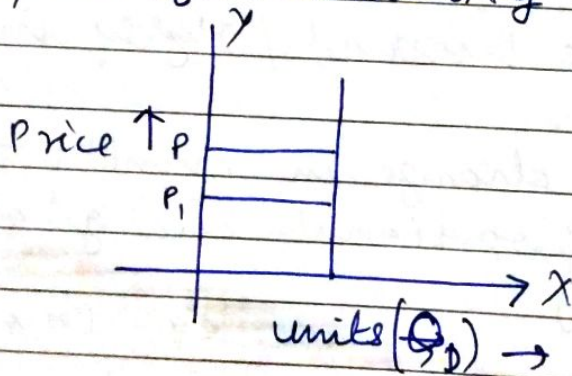 y
Price ↑ P
P₁
→ X
units (Q_D) →